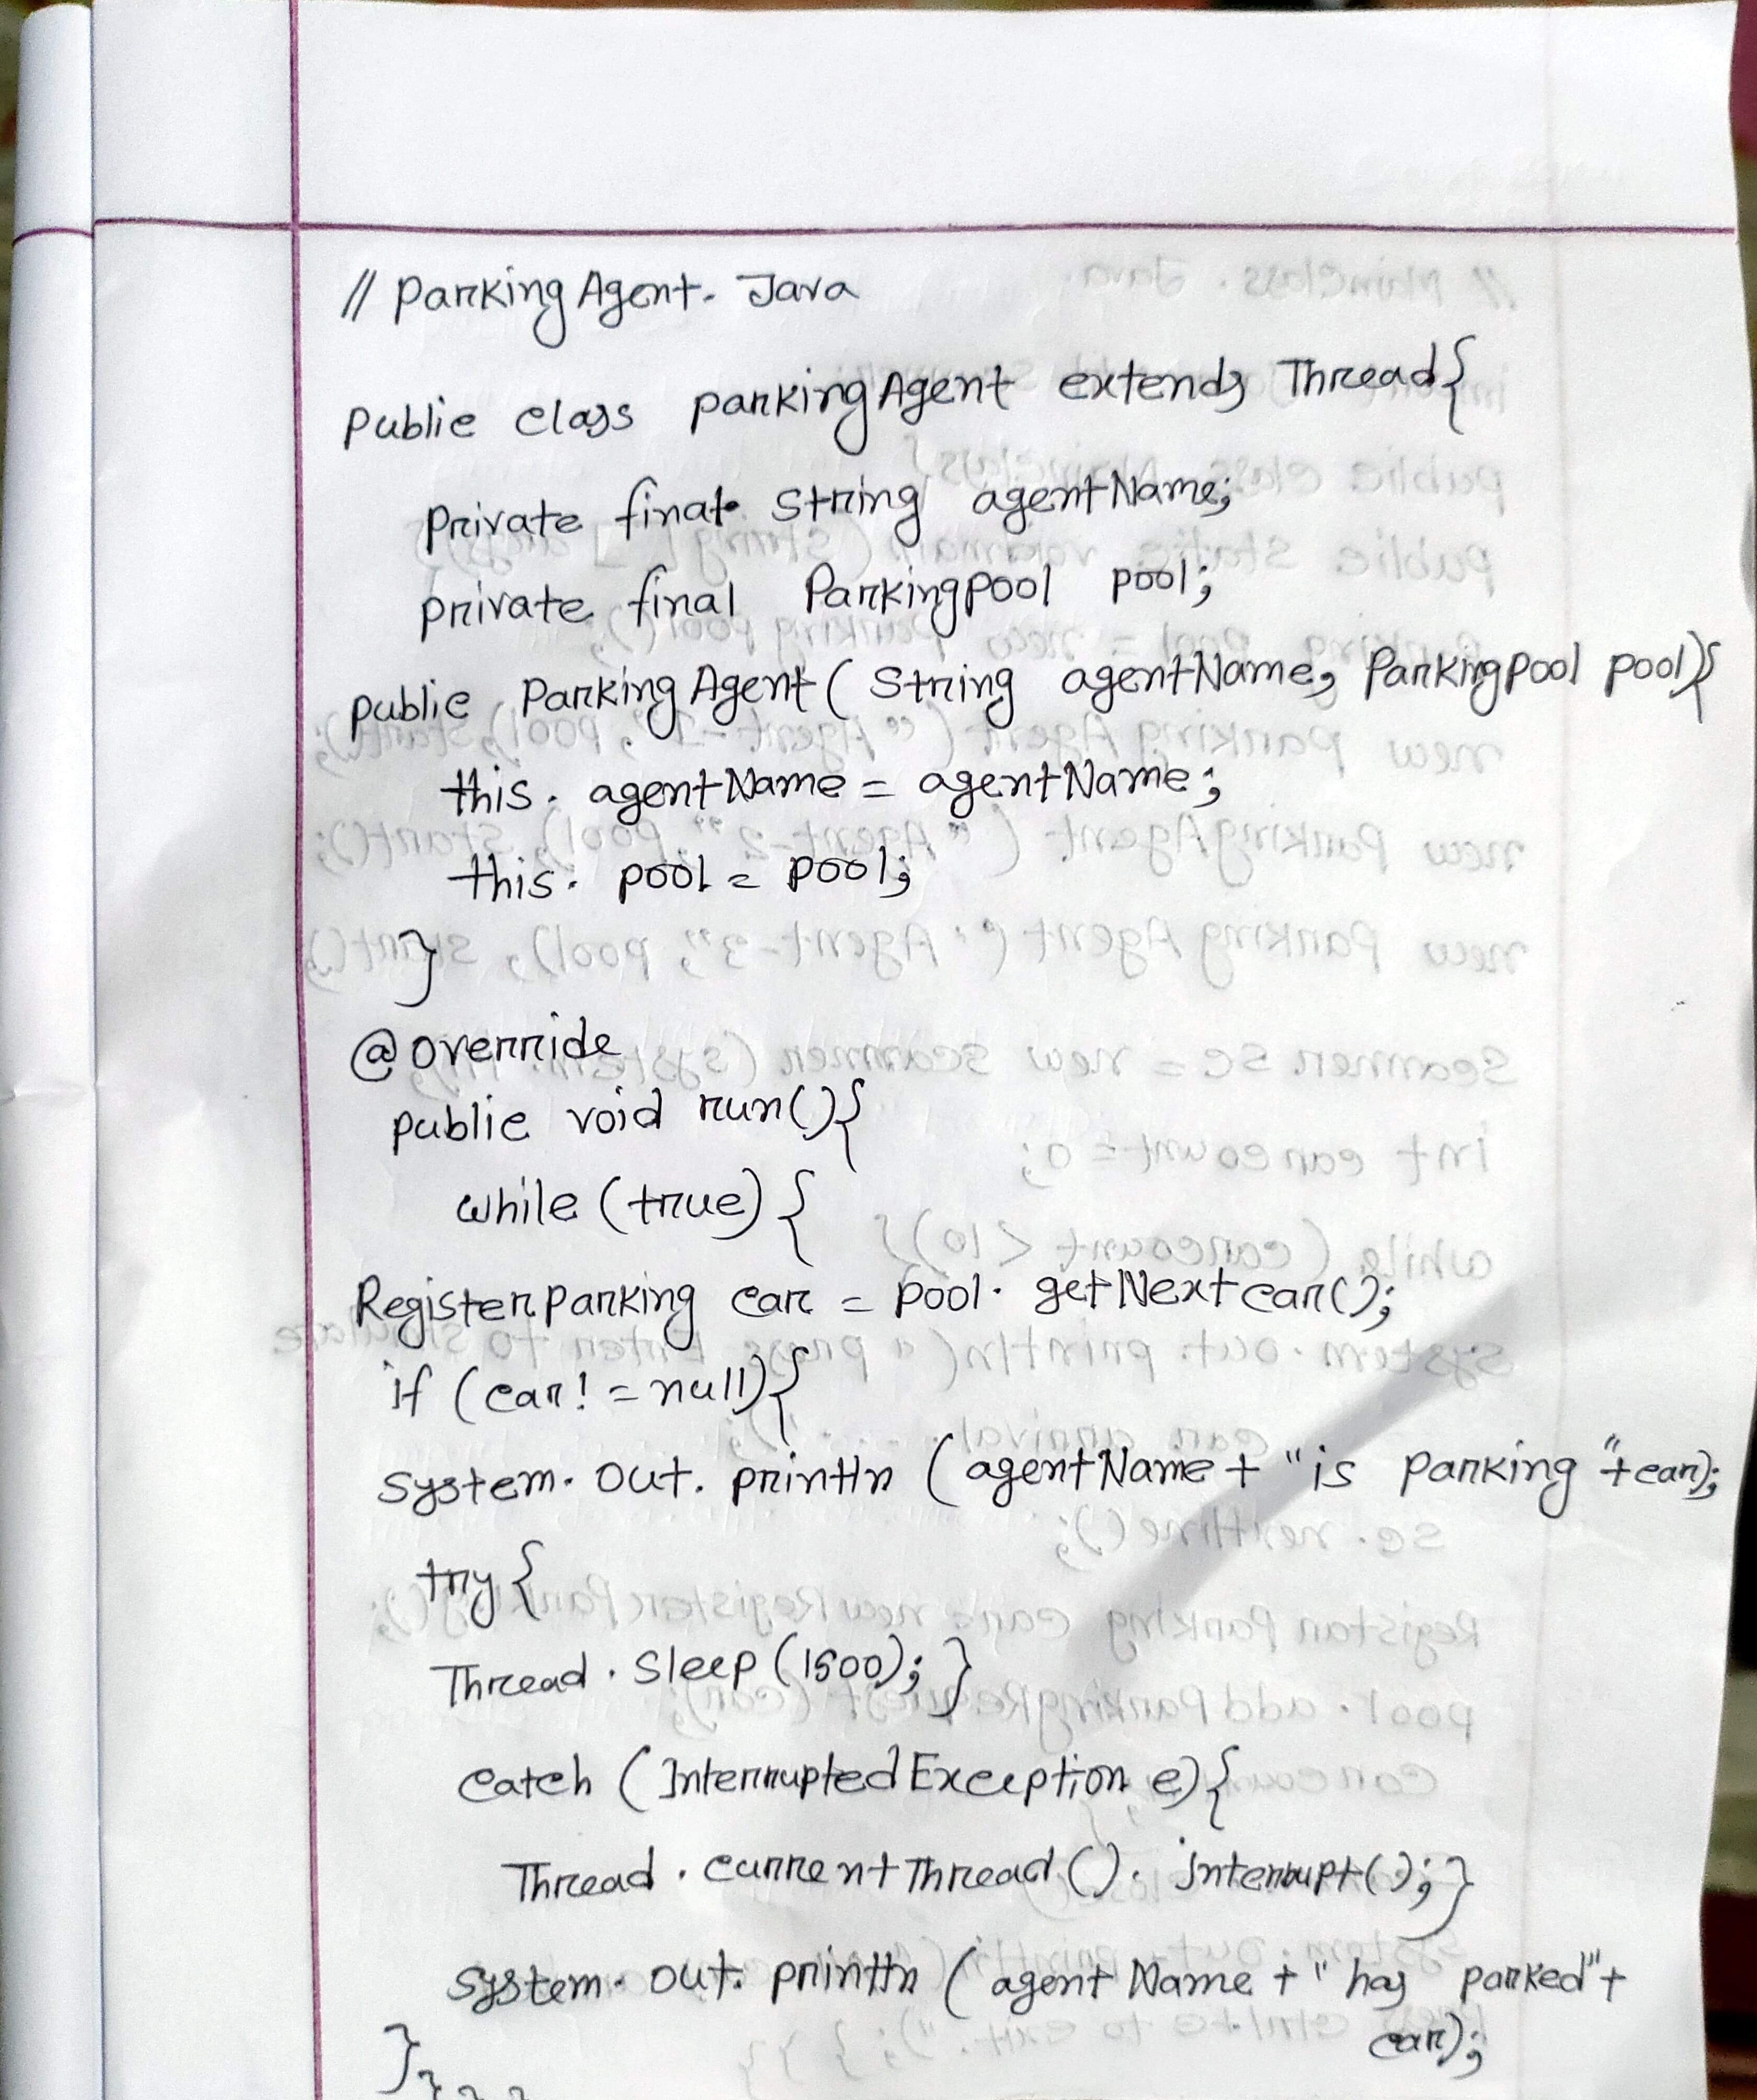 // ParkingAgent. Java
Public class parkingAgent extends Thread{
private final String agentName;
private final Parkingpool pool;
public ParkingAgent( String agentName, Parkingpool pool){
this. agentName = agentName;
this. pool = pool;
}
@override
public void run(){
while (true) {
Registerparking car = pool. getNextcar();
if (car! = null){
System. out. println (agentName + "is parking "+car);
try {
Thread. Sleep (1500); }
catch (InterruptedException e){
Thread. currentThread(). interrupt(); }
System. out. println ( agentName + " has parked"+
car);
}
} } }